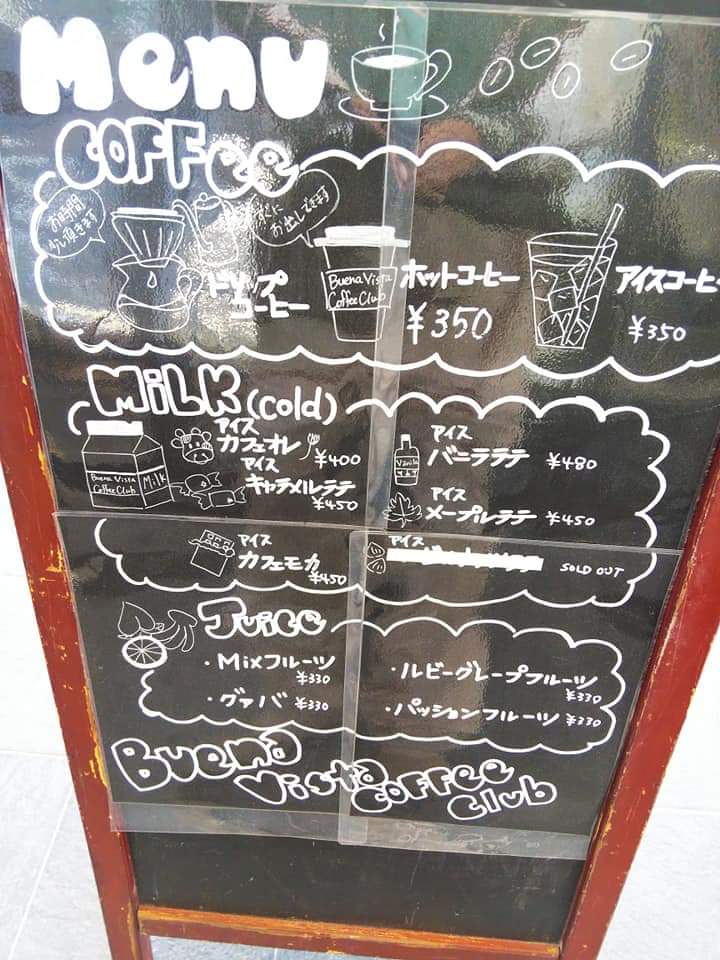 Menu
COFFee
お時間
少し頂きます
すぐに
お出しできます
ドリップ
コーヒー
Buena Vista
Coffee Club
ホットコーヒー
¥350
アイスコーヒー
¥350
MiLK (cold)
Buena Vista
Coffee Club
Milk
アイス
カフェオレ
¥400
アイス
キャラメルラテ
¥450
Vanilla
アイス
バニララテ ¥480
アイス
メープルラテ ¥450
アイス
カフェモカ
¥450
アイス
SOLD OUT
Juice
・Mixフルーツ
¥330
・グァバ ¥330
・ルビーグレープフルーツ
¥330
・パッションフルーツ ¥330
Buena
Vista
Coffee
Club